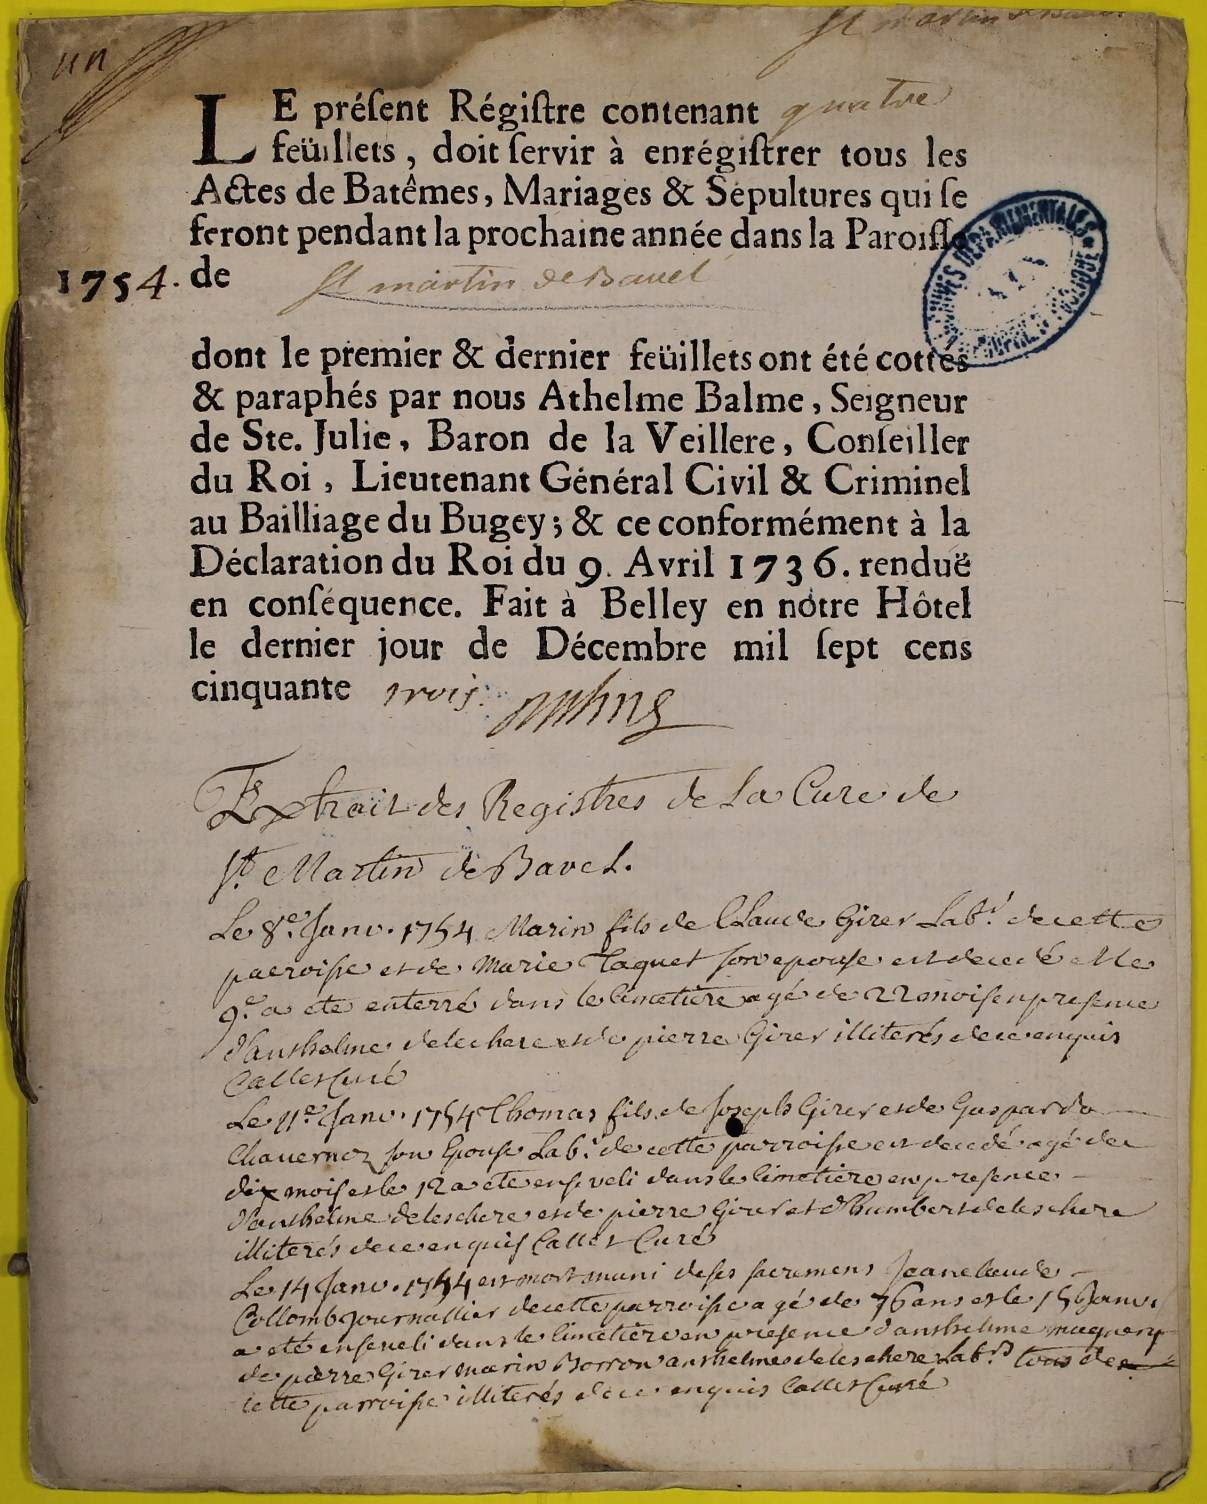 un
St martin de Bavel
LE préſent Régiſtre contenant quatre
feüillets, doit ſervir à enrégiſtrer tous les
Actes de Batêmes, Mariages & Sépultures qui ſe
feront pendant la prochaine année dans la Paroiſſe
1754. de St martin de Bavel
dont le premier & dernier feüillets ont été cottés
& paraphés par nous Athelme Balme, Seigneur
de Ste. Julie, Baron de la Veillere, Conſeiller
du Roi, Lieutenant Général Civil & Criminel
au Bailliage du Bugey; & ce conformément à la
Déclaration du Roi du 9. Avril 1736. renduë
en conſéquence. Fait à Belley en nôtre Hôtel
le dernier jour de Décembre mil ſept cens
cinquante trois.
Extrait des Registres de La Cure de
St. Martin de Bavel.
Le 8e. Janv. 1754 Marin fils de Claude Girer Labr. de cette
parroisse et de Marie Taquet son epouse est decedé et le
9e. a ete enterré dans le cimetiere agé de 22 mois en presence
d'anthelme delechere et de pierre Girer illiterés de ce enquis
Callet Curé
Le 11e Janv. 1754 Thomas fils de Joseph Girer et de Gasparde
Chavernoz son Epouse Labr. de cette parroisse est decedé agé de
dix mois et le 12 a ete enseveli dans le cimetiere en presence
d'anthelme deleschere et de pierre Girer et d'humbert deleschere
illiterés de ce enquis Callet Curé
Le 14 Janv. 1754 est mort muni de ses sacremens Jeanclaude
Collomb journallier de cette parroisse agé de 76 ans et le 15 Janv.
a eté enseveli dans le cimetiere en presence d'anthelme
de pierre Girer marin Borron anthelme deleschere Labrs tous de
cette parroisse illiterés de ce enquis Callet Curé